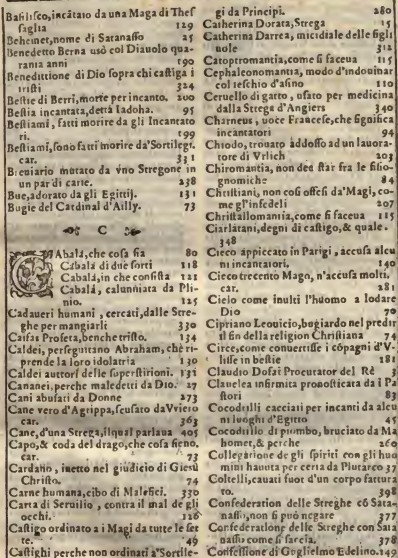 Basilisco, incãtato da una Maga di Thes
saglia 129
Behemet, nome di Satanasso 25
Benedetto Berna usò col Diauolo qua-
ranta anni 190
Benedittione di Dio sopra chi castiga i
tristi 324
Bestie di Berri, morte per incanto. 200
Bestia incantata, detta Iadoha. 95
Bestiami, fatti morire da gli Incantato
ri. 199
Bestiami, sono fatti morire da' Sortilegi.
car. 331
Breuiario mutato da vno Stregone in
un par di carte. 238
Bue, adorato da gli Egittij. 131
Bugie del Cardinal d'Ailly. 73
C
CAbala, che cosa sia 80
Cabala di due sorti 118
Cabala, in che consista 121
Cabala, calunniata da Pli-
nio. 125
Cadaueri humani, cercati, dalle Stre-
ghe per mangiarli 330
Caifas Profeta, benche tristo. 134
Caldei, perseguitano Abraham, ch'ri-
prende la loro idolatria 130
Caldei auttori delle superstitioni. 131
Cananei, perche maledetti da Dio. 27
Cani abusati da Donne 273
Cane vero d'Agrippa, scusato da Vviero
car. 363
Cane, d'una Strega, il qual parlaua 405
Capo, & coda del drago, che cosa sieno.
car. 73
Cardano, inetto nel giudicio di Giesù
Christo. 74
Carne humana, cibo di Malefici. 330
Carta di Seruilio, contra il mal de gli
occhi. 126
Castigo ordinato a i Magi da tutte le set
te. 49
Castighi perche non ordinati a' Sortile-
gi da Principi. 280
Catherina Dorata, Strega 15
Catherina Darrea, micidiale delle figli
uole 312
Catoptromantia, come si faceua 115
Cephaleonomantia, modo d'indouinar
col teschio d'asino 110
Ceruello di gatto, usato per medicina
dalla Strega d'Angiers 340
Charneus, uoce Francese, che significa
incantatori 94
Chiodo, trouato addosso ad un lauora-
tore di Vrlich 203
Chiromantia, non dee star fra le fisio-
gnomiche 84
Christiani, non così offesi da'Magi, co-
me gl'infedeli 207
Christallomantia, come si faceua 115
Ciarlatani, degni di castigo, & quale.
348
Cieco appiccato in Parigi, accusa alcu
ni incantatori. 140
Cieco trecento Mago, n'accusa molti.
car. 281
Cielo come inuiti l'huomo a lodare
Dio 70
Cipriano Leouicio, bugiardo nel predir
il fin della religion Christiana 74
Circe, come conuertisse i cõpagni d'V-
lisse in bestie 181
Claudio Dofai Procurator del Rè 3
Clauelea infirmita pronosticata da i Pa
stori 83
Cocodrilli cacciati per incanti da alcu
ni luoghi d'Egitto 45
Cocodrillo di piombo, bruciato da Ma
homet, & perche 260
Collegatione de gli spiriti con gli huo
mini hauuta per certa da Plutarco 37
Coltelli, cauati fuor d'un corpo fattura
to. 398
Confederation delle Streghe cõ Sata-
nasso, non si può negare 377
Confederatione delle Streghe con Sata
nasso come si faccia. 378
Confessione di Guglielmo Edelino. 149